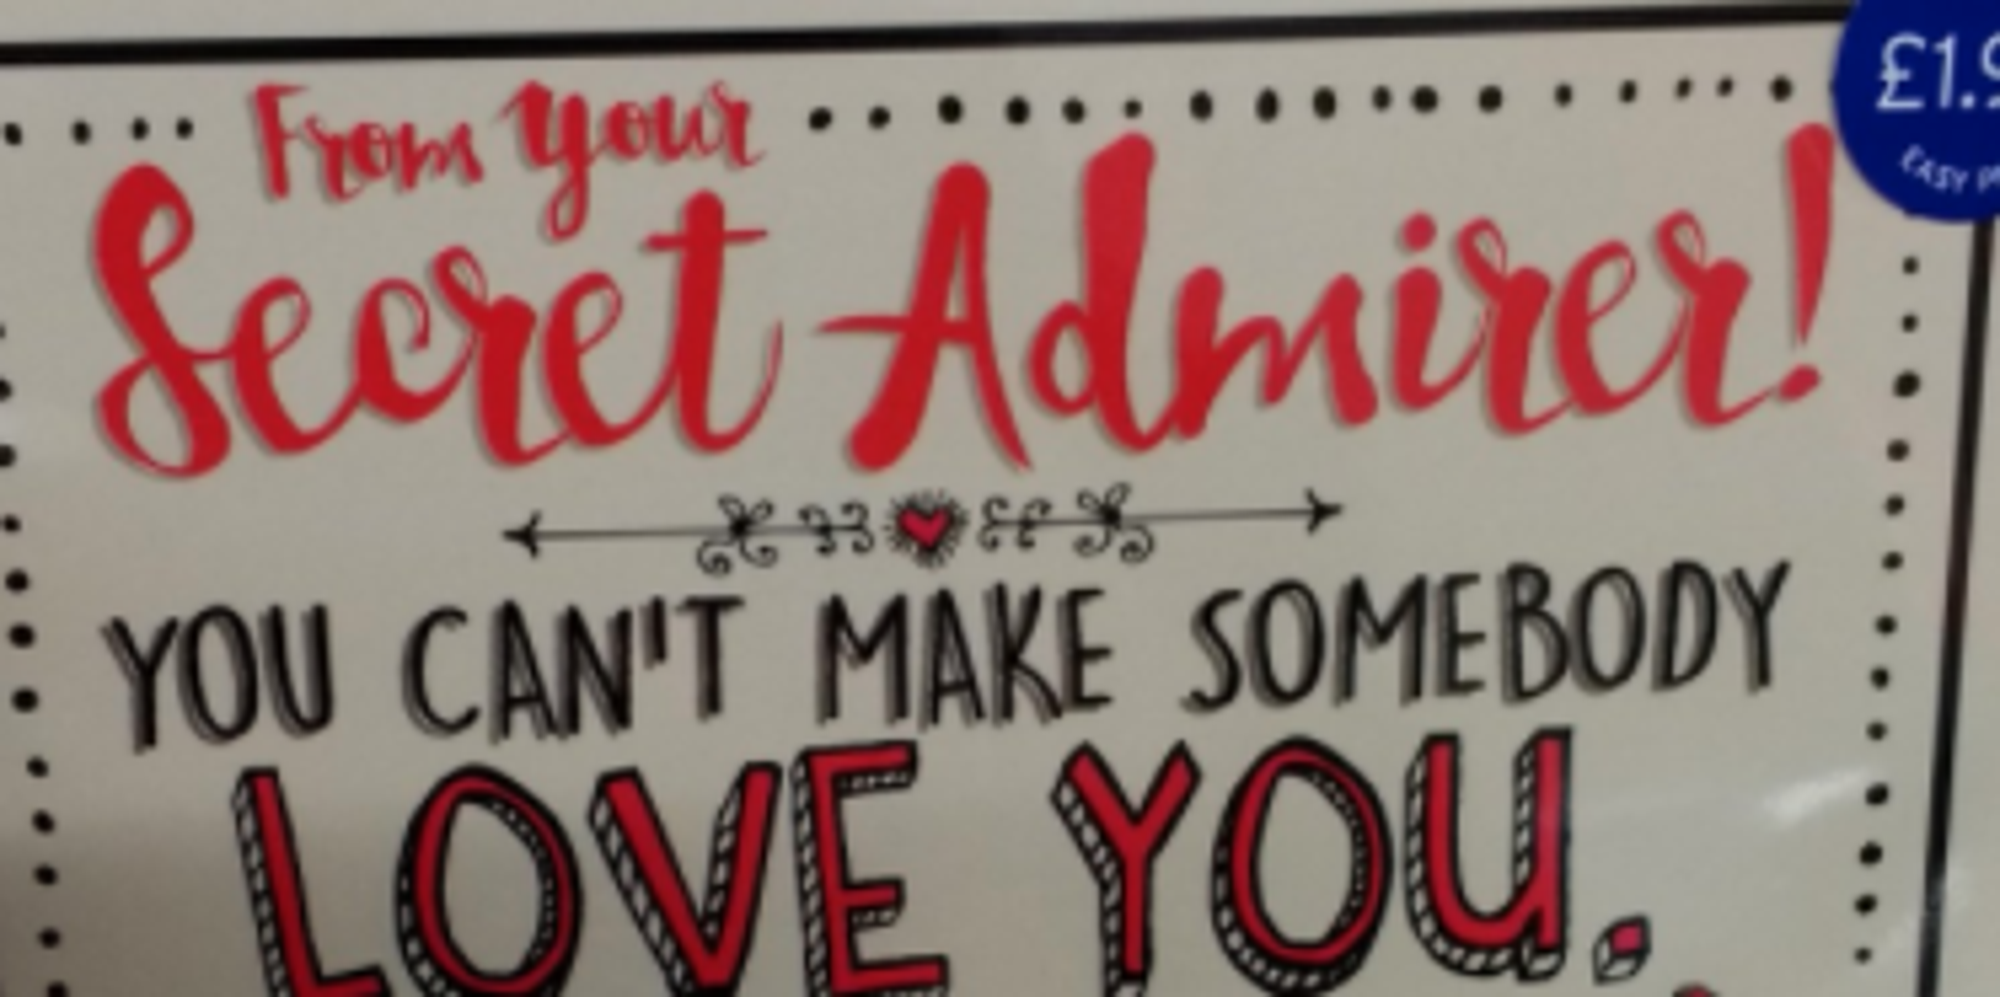 From your
Secret Admirer!
YOU CAN'T MAKE SOMEBODY
LOVE YOU.
EASY